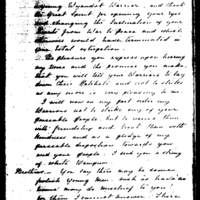 Wyandot Warrior, and thank
the Great Spirit for opening your Eyes
and changing the Inclination of your
Hearts from War to Peace which
otherwise would have terminated in
your total extirpation.
The pleasure you express upon hearing
my Voice and the promise you make
that you will tell your Warriors to lay
down their Hatchets and not to strike
any more is very pleasing to me
I will now on my part order my
Warriors not to strike any of your
peaceable People, but to receive them
with friendship and treat them with
kindness and as a pledge of my
peaceable disposition towards you
and your people I send you a string
of white Wampum
Brothers You say there may be some
foolish Young Men
may do mischief to you!
for them I cannot answer! There